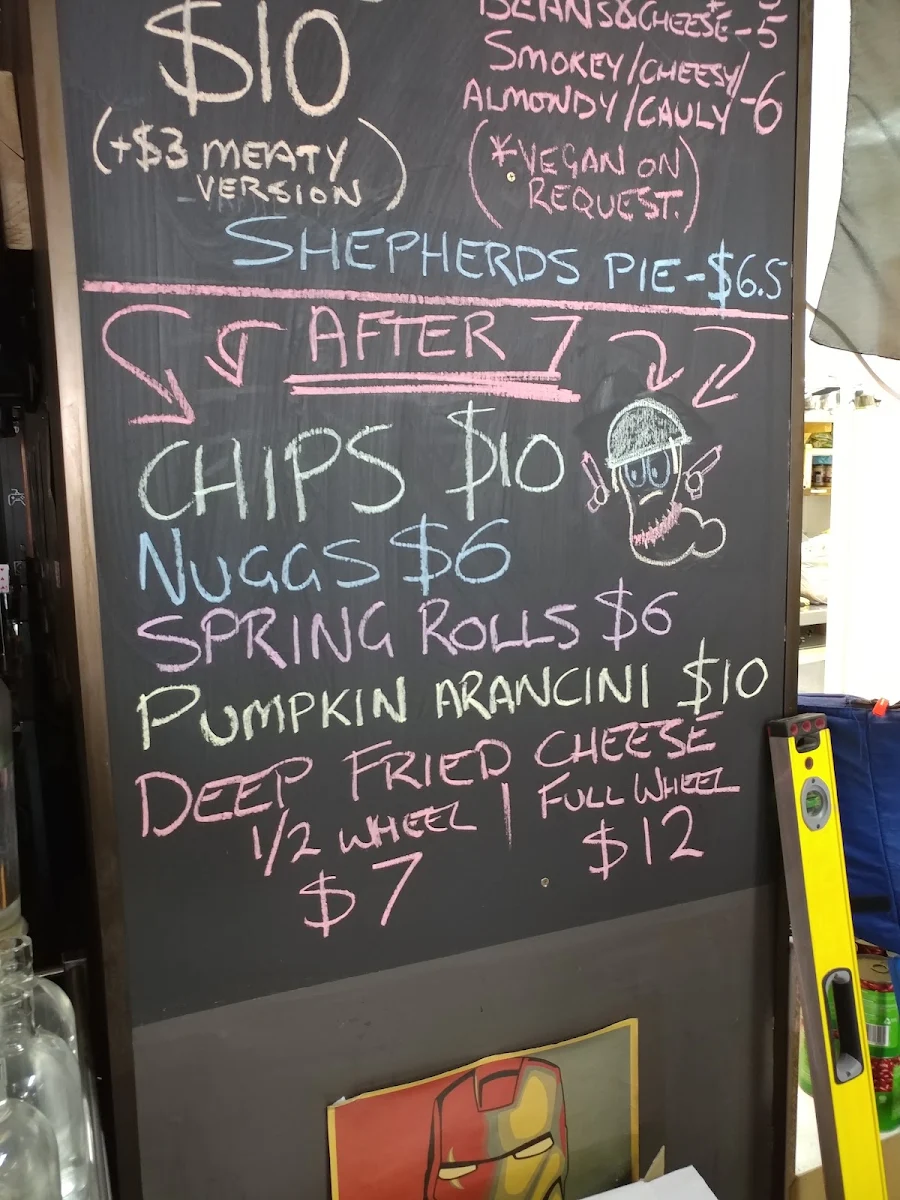 $10
(+$3 MEATY
VERSION)
BEANS&CHEESE*-5
SMOKEY/CHEESY/
ALMONDY/CAULY-6
(*VEGAN ON
REQUEST.)
SHEPHERDS PIE-$6.5
AFTER 7
CHIPS $10
NUGGS $6
SPRING ROLLS $6
PUMPKIN ARANCINI $10
DEEP FRIED CHEESE
1/2 WHEEL | FULL WHEEL
$7 $12